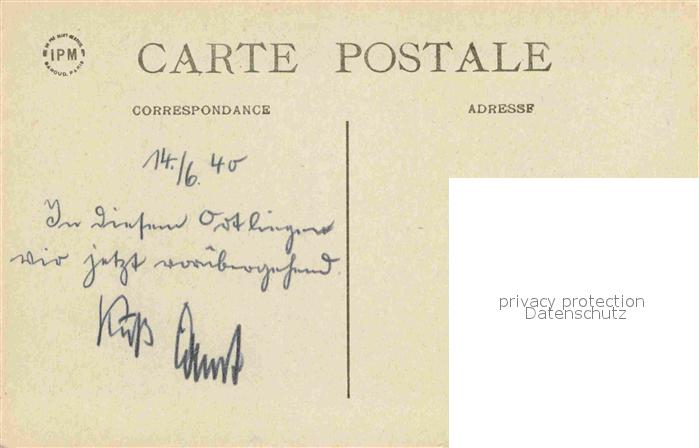 CARTE POSTALE
IPM
BAROUD, PARIS
CORRESPONDANCE
ADRESSE
14./6. 40
In diesem Ort liegen
wir jetzt vorübergehend.
Kuß
privacy protection
Datenschutz